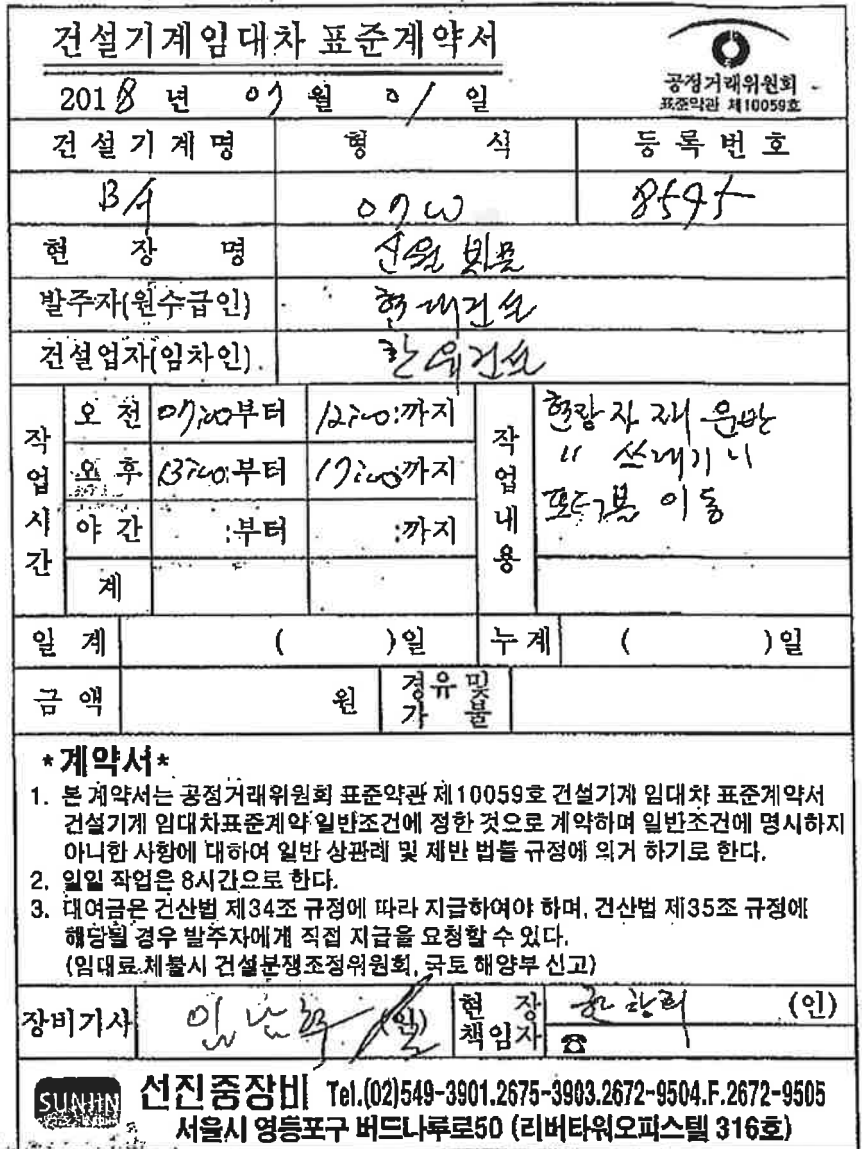 건설기계임대차 표준계약서
공정거래위원회
표준약관 제10059호
2018 년 07 월 01 일
건설기계명 형 식 등록번호
07W 8595
현 장 명 신월 빗물
발주자(원수급인) 현대건설
건설업자(임차인)
작업시간 작업내용
오 전 07:00부터 12:00:까지
현장 자재 운반
오 후 13:00:부터 17:00:까지
" 쓰레기 "
야 간 :부터 :까지
이동
계
일 계 ( )일 누계 ( )일
금 액 원 경유 및 가불
*계약서*
1. 본 계약서는 공정거래위원회 표준약관 제10059호 건설기계 임대차 표준계약서
건설기계 임대차표준계약 일반조건에 정한 것으로 계약하며 일반조건에 명시하지
아니한 사항에 대하여 일반 상관례 및 제반 법률 규정에 의거 하기로 한다.
2. 일일 작업은 8시간으로 한다.
3. 대여금은 건산법 제34조 규정에 따라 지급하여야 하며, 건산법 제35조 규정에
해당될 경우 발주자에게 직접 지급을 요청할 수 있다.
(임대료 체불시 건설분쟁조정위원회, 국토 해양부 신고)
장비기사 (인) 현 장 책임자 (인)
☎
SUNJIN 선진중장비 Tel.(02)549-3901.2675-3903.2672-9504.F.2672-9505
서울시 영등포구 버드나루로50 (리버타워오피스텔 316호)